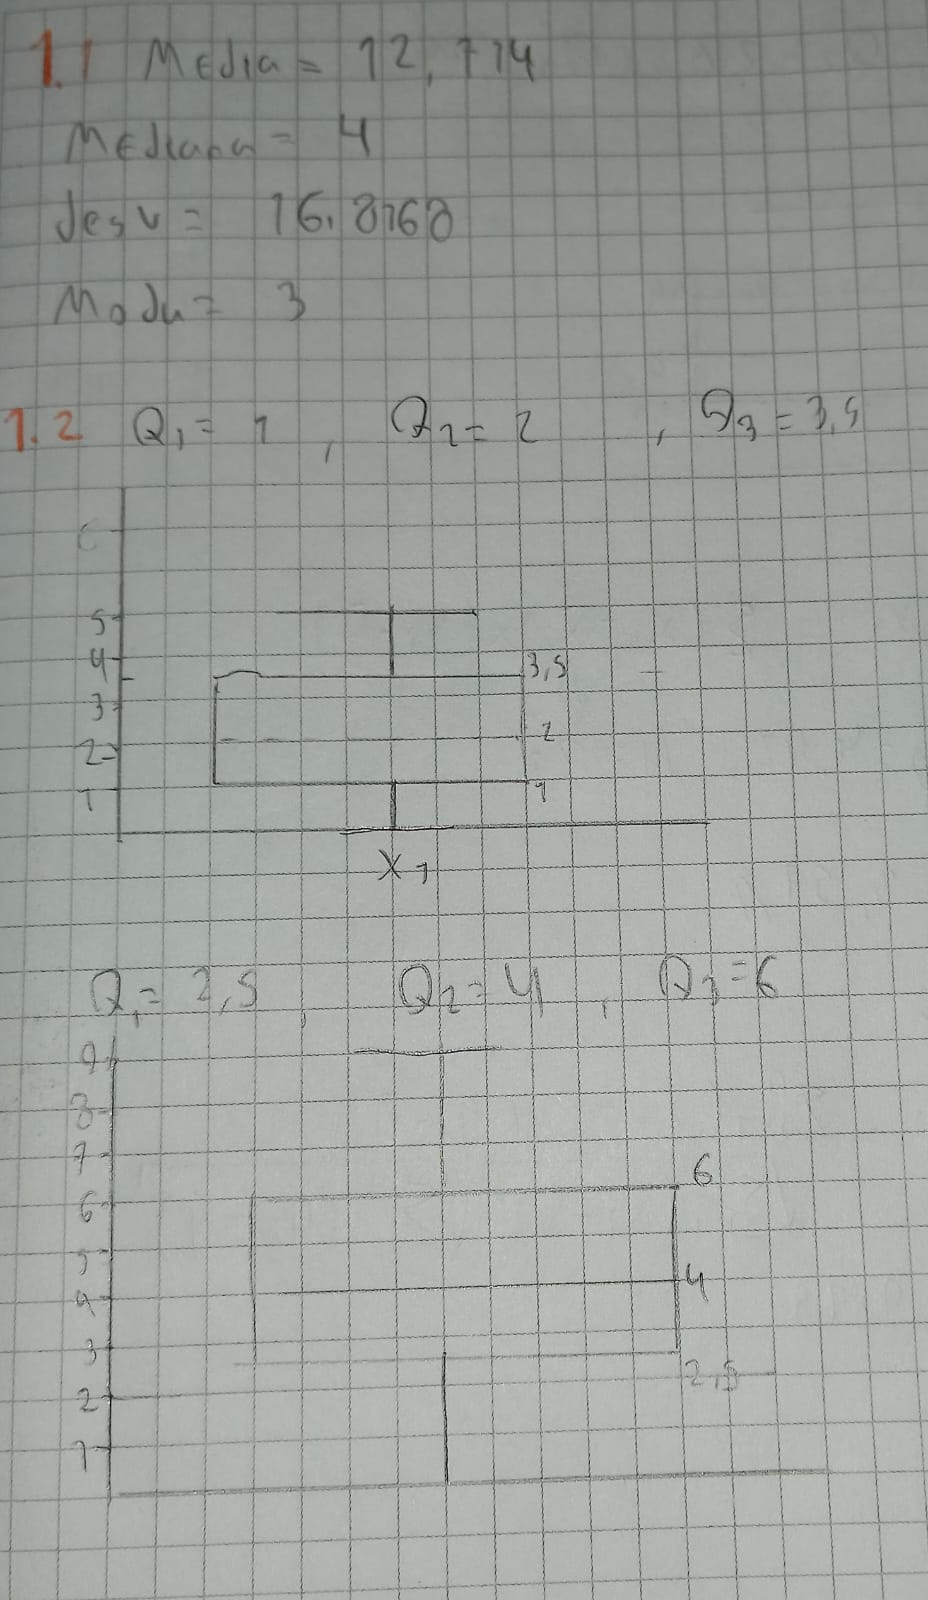 1.1 Media = 12,714
Mediana = 4
desv = 16.8768
Moda = 3
1.2 Q1 = 1 , Q2 = 2 , Q3 = 3,5
6
5
4
3,5
3
2
2
1
1
X1
Q1 = 2,5 , Q2 = 4 , Q3 = 6
9
8
7
6
6
5
4
4
3
2,5
2
1